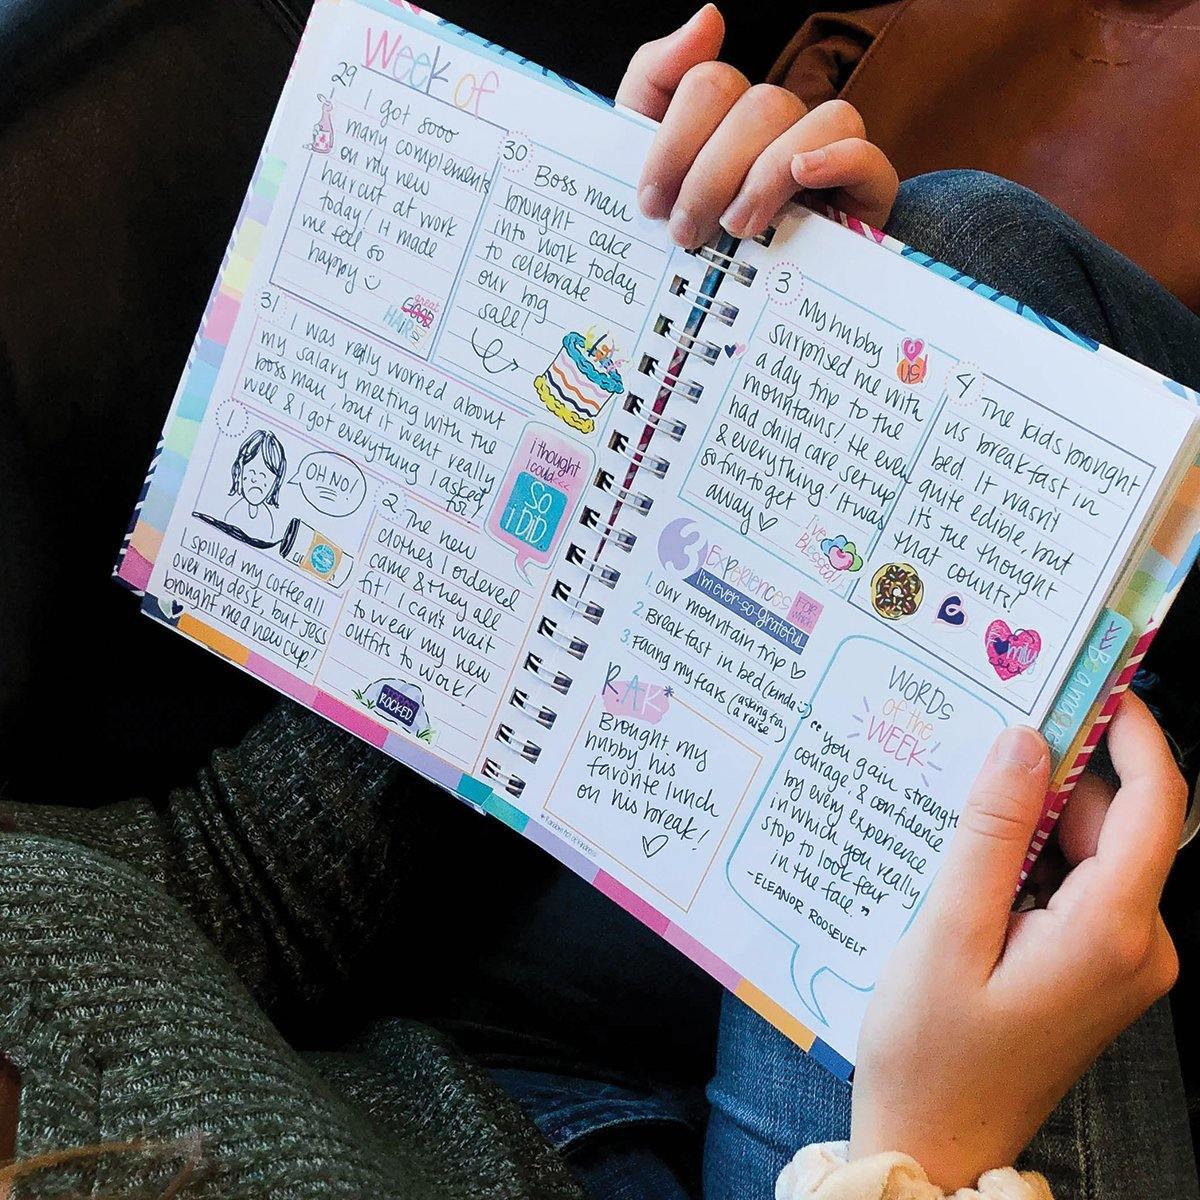 Week of
29
I got sooo
many complements
on my new
haircut at work
today! It made
me feel so
happy
great
GOOD
HAIR
30
Boss man
brought cake
into work today
to celebrate
our big
sale!
31
I was really worried about
my salary meeting with the
boss man, but it went really
well & I got everything I asked
for!
i thought
i could<<<
SO
i DiD.
1
OH NO!
I spilled my coffee all
over my desk, but Jess
brought me a new cup!
2
The new
clothes I ordered
came & they all
fit! I can't wait
to wear my new
outfits to work!
ROCKED
3
My hubby
surprised me with
a day trip to the
mountains! He even
had child care set up
& everything! It was
so fun to get
away
US
I'm
BLESSED!
4
The kids brought
us breakfast in
bed. It wasn't
quite edible, but
it's the thought
that counts!
Family
3 EXPERIENCES FOR which
I'm ever-so-grateful
1. our mountain trip
2. Breakfast in bed (kinda)
3. Facing my fears (asking for
a raise)
R.A.K*
Brought my
hubby his
favorite lunch
on his break!
*Random Act of Kindness
WORDS
of the
WEEK
"you gain strength
courage, & confidence
by every experience
in which you really
stop to look fear
in the face."
-ELEANOR ROOSEVELT